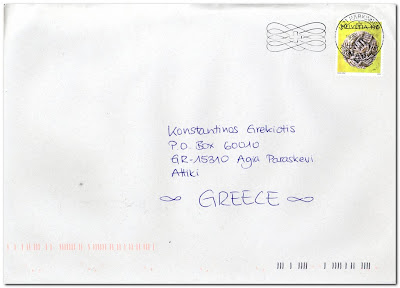 HELVETIA
Konstantinos Grekiotis
P.O. Box 60010
GR-15310 Agia Paraskevi
Attiki
GREECE